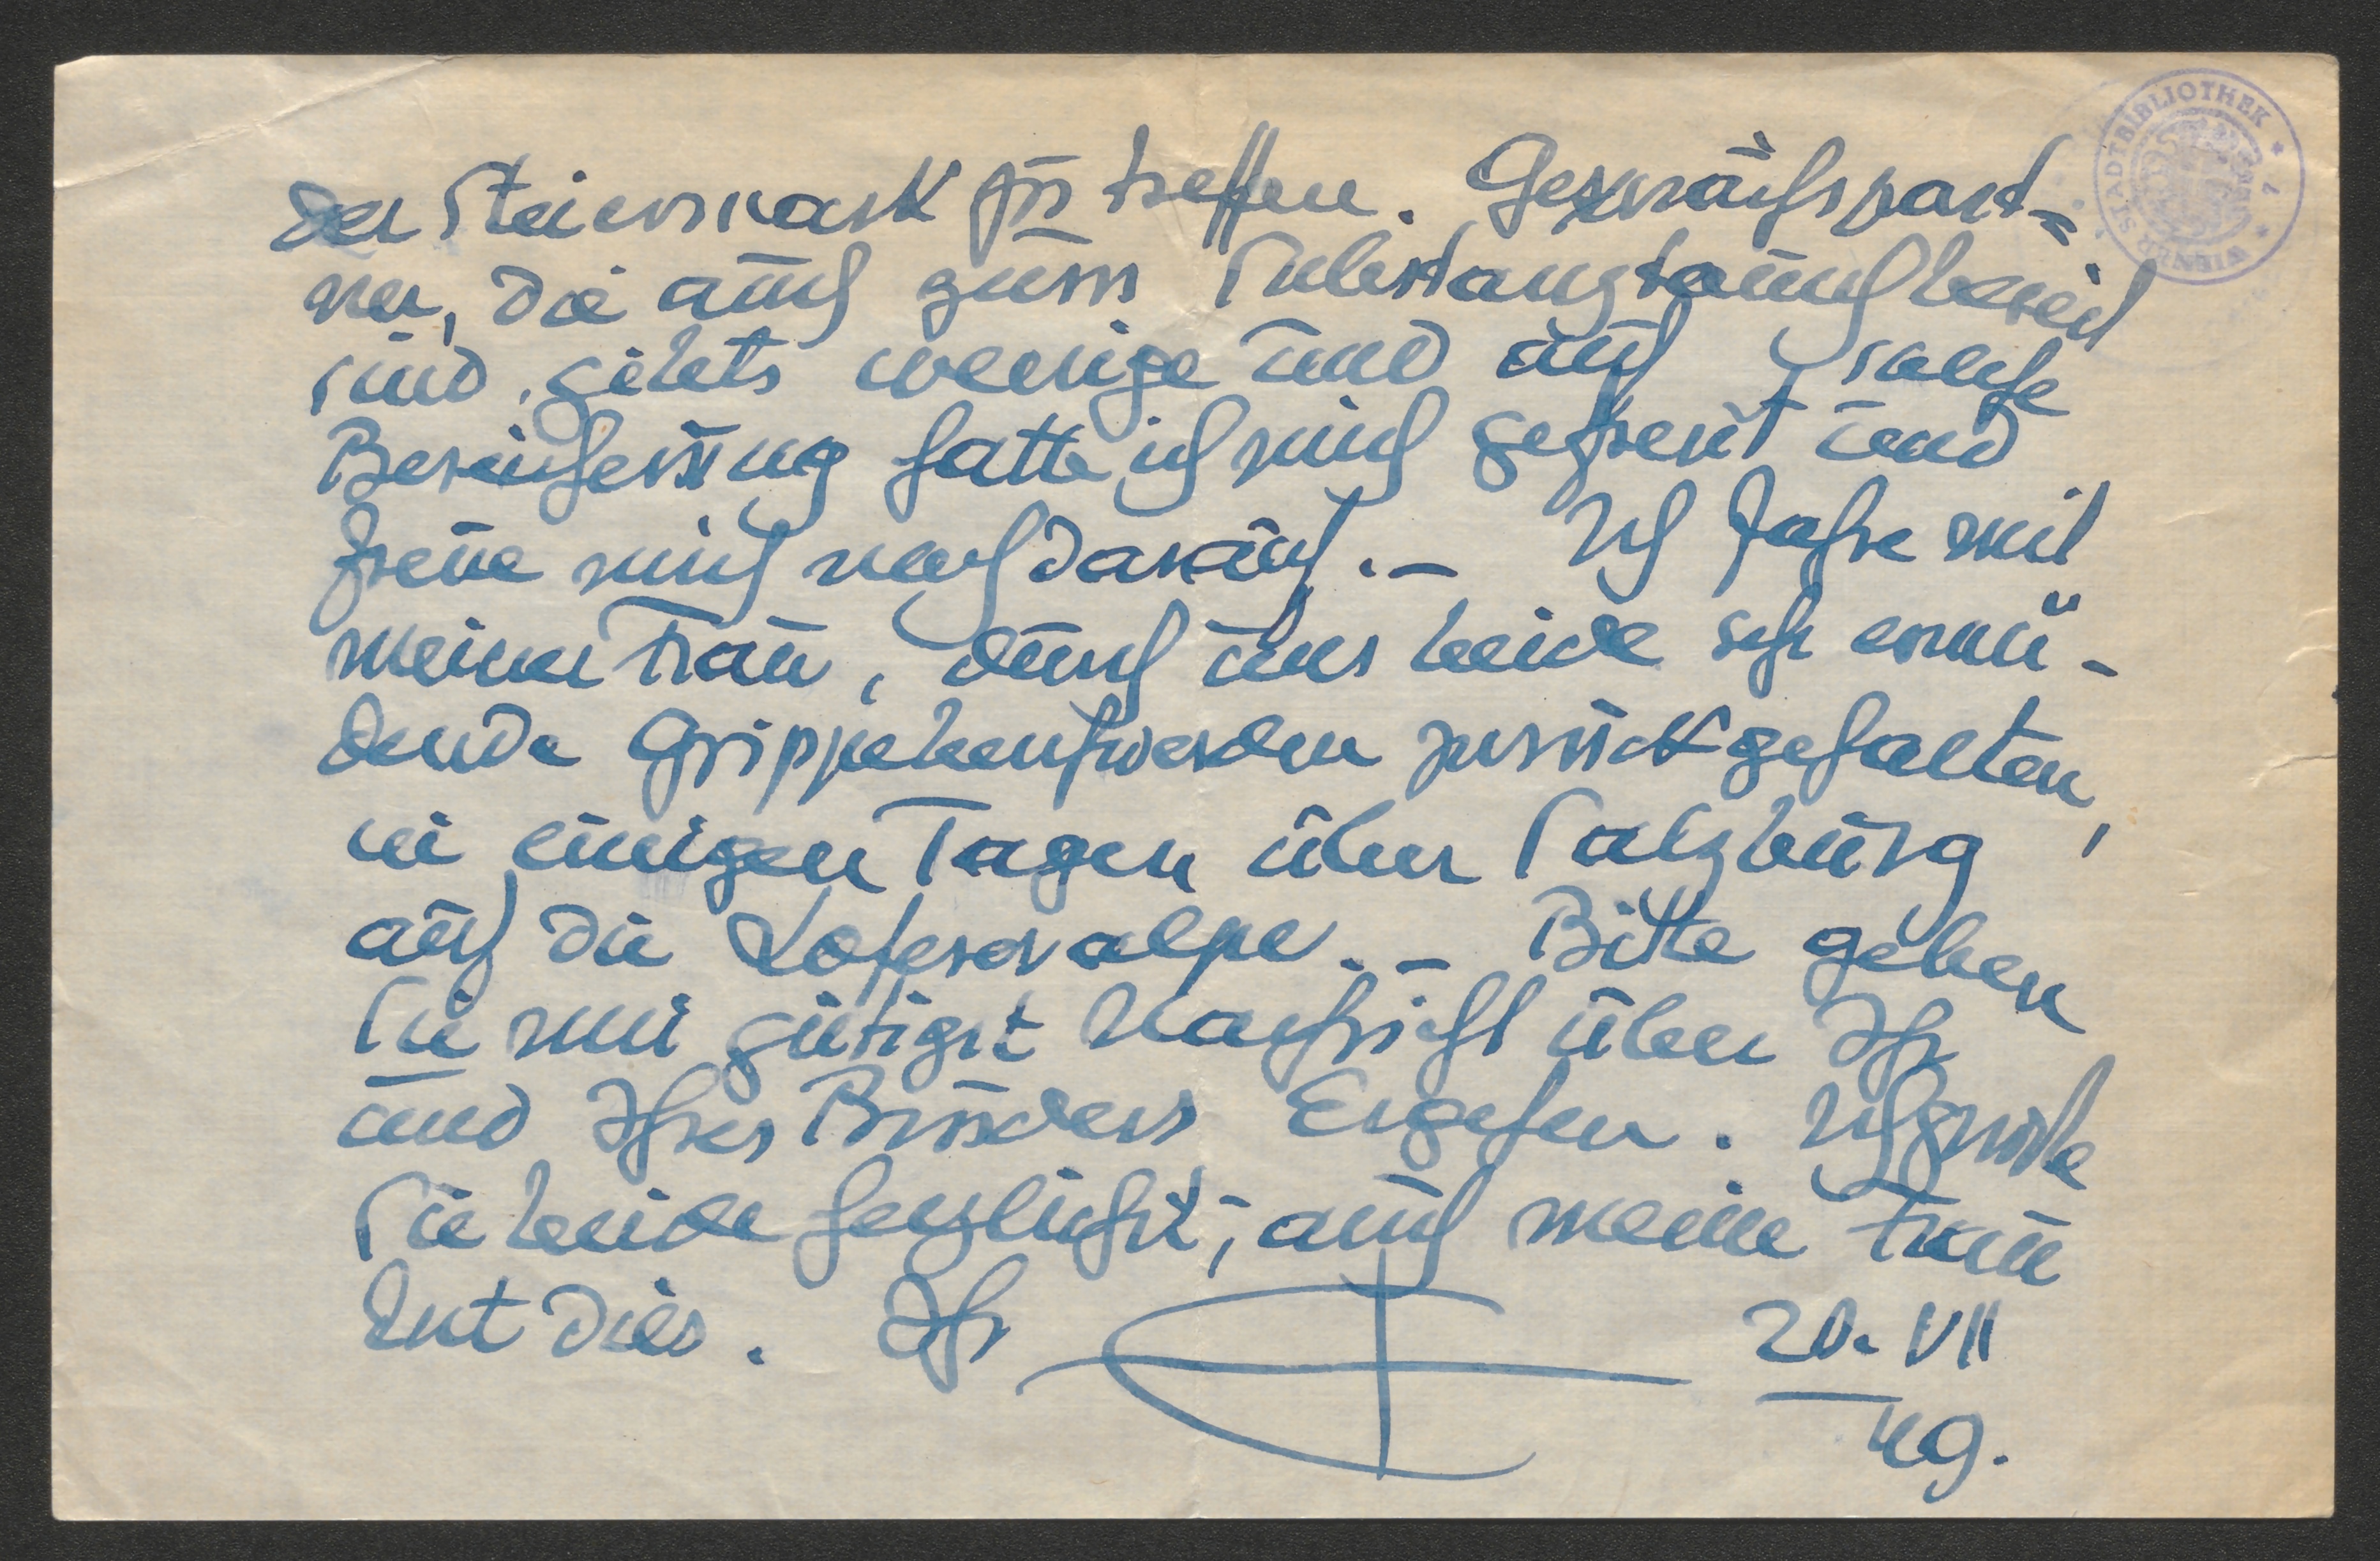 der Steiermark zu treffen. Gesprächspart=
ner, die auch zum Substanztausch bereit
sind, gibts wenige und auf solche
Bereicherung hatte ich mich gefreut und
freue mich noch darauf. — Ich fahre mit
meiner Frau, durch uns beide sehr ermü-
dende Grippebeschwerden zurückgehalten,
in einigen Tagen über Salzburg
auf die Loferer alpe. — Bitte geben
Sie mir gütigst Nachricht über Ihr
und Ihres Bruders Ergehen. Ich grüße
Sie beide herzlichst, auch meine Frau
tut dies. Ihr
20. VII
49.
WIENER STADTBIBLIOTHEK * 7 *